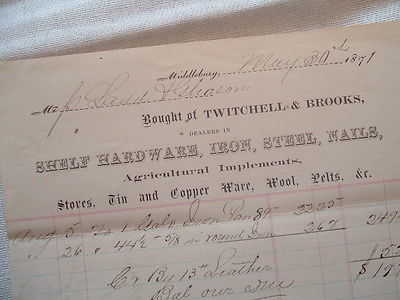 Middlebury, May 30th 1871
M David Gleason
Bought of TWITCHELL & BROOKS,
DEALERS IN
SHELF HARDWARE, IRON, STEEL, NAILS,
Agricultural Implements,
Stoves, Tin and Copper Ware, Wool, Pelts, &c.
Aug 5 To 1 Galv Iron Pan 89 2225
26 " 44½ 5/8 in round Iron 267 249
Cr By 13 lb Leather 15
Bal our Due $ 19